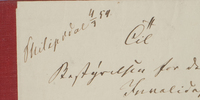 Philipsdal 4/3 59
Til
Bestyrelsen for de
Invalide